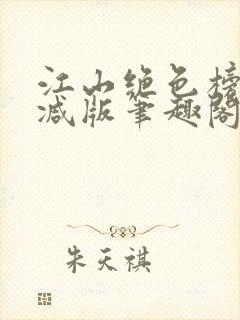 江山绝色榜
减版笔趣阁
朱天祺